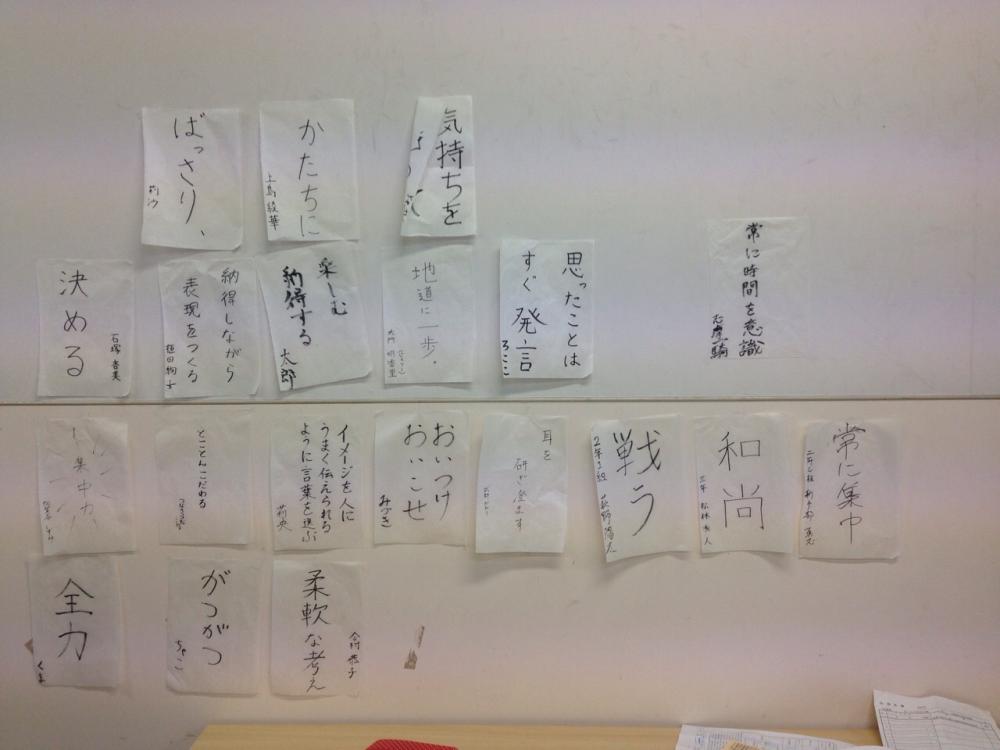 ばっさり、
莉沙
かたちに
上島綾華
気持ちを
決める
石塚杏実
納得しながら
表現をつくる
楽しむ
納得する
太郎
地道に一歩。
思ったことは
すぐ発言
ろここ
常に時間を意識
集中力
とことんこだわる
イメージを人に
うまく伝えられる
ように言葉を選ぶ
莉央
おいつけ
おいこせ
みづき
耳を
研ぎ澄ます
戦う
2年3組
和尚
常に集中
全力
くま
がつがつ
ちゃこ
柔軟な考え